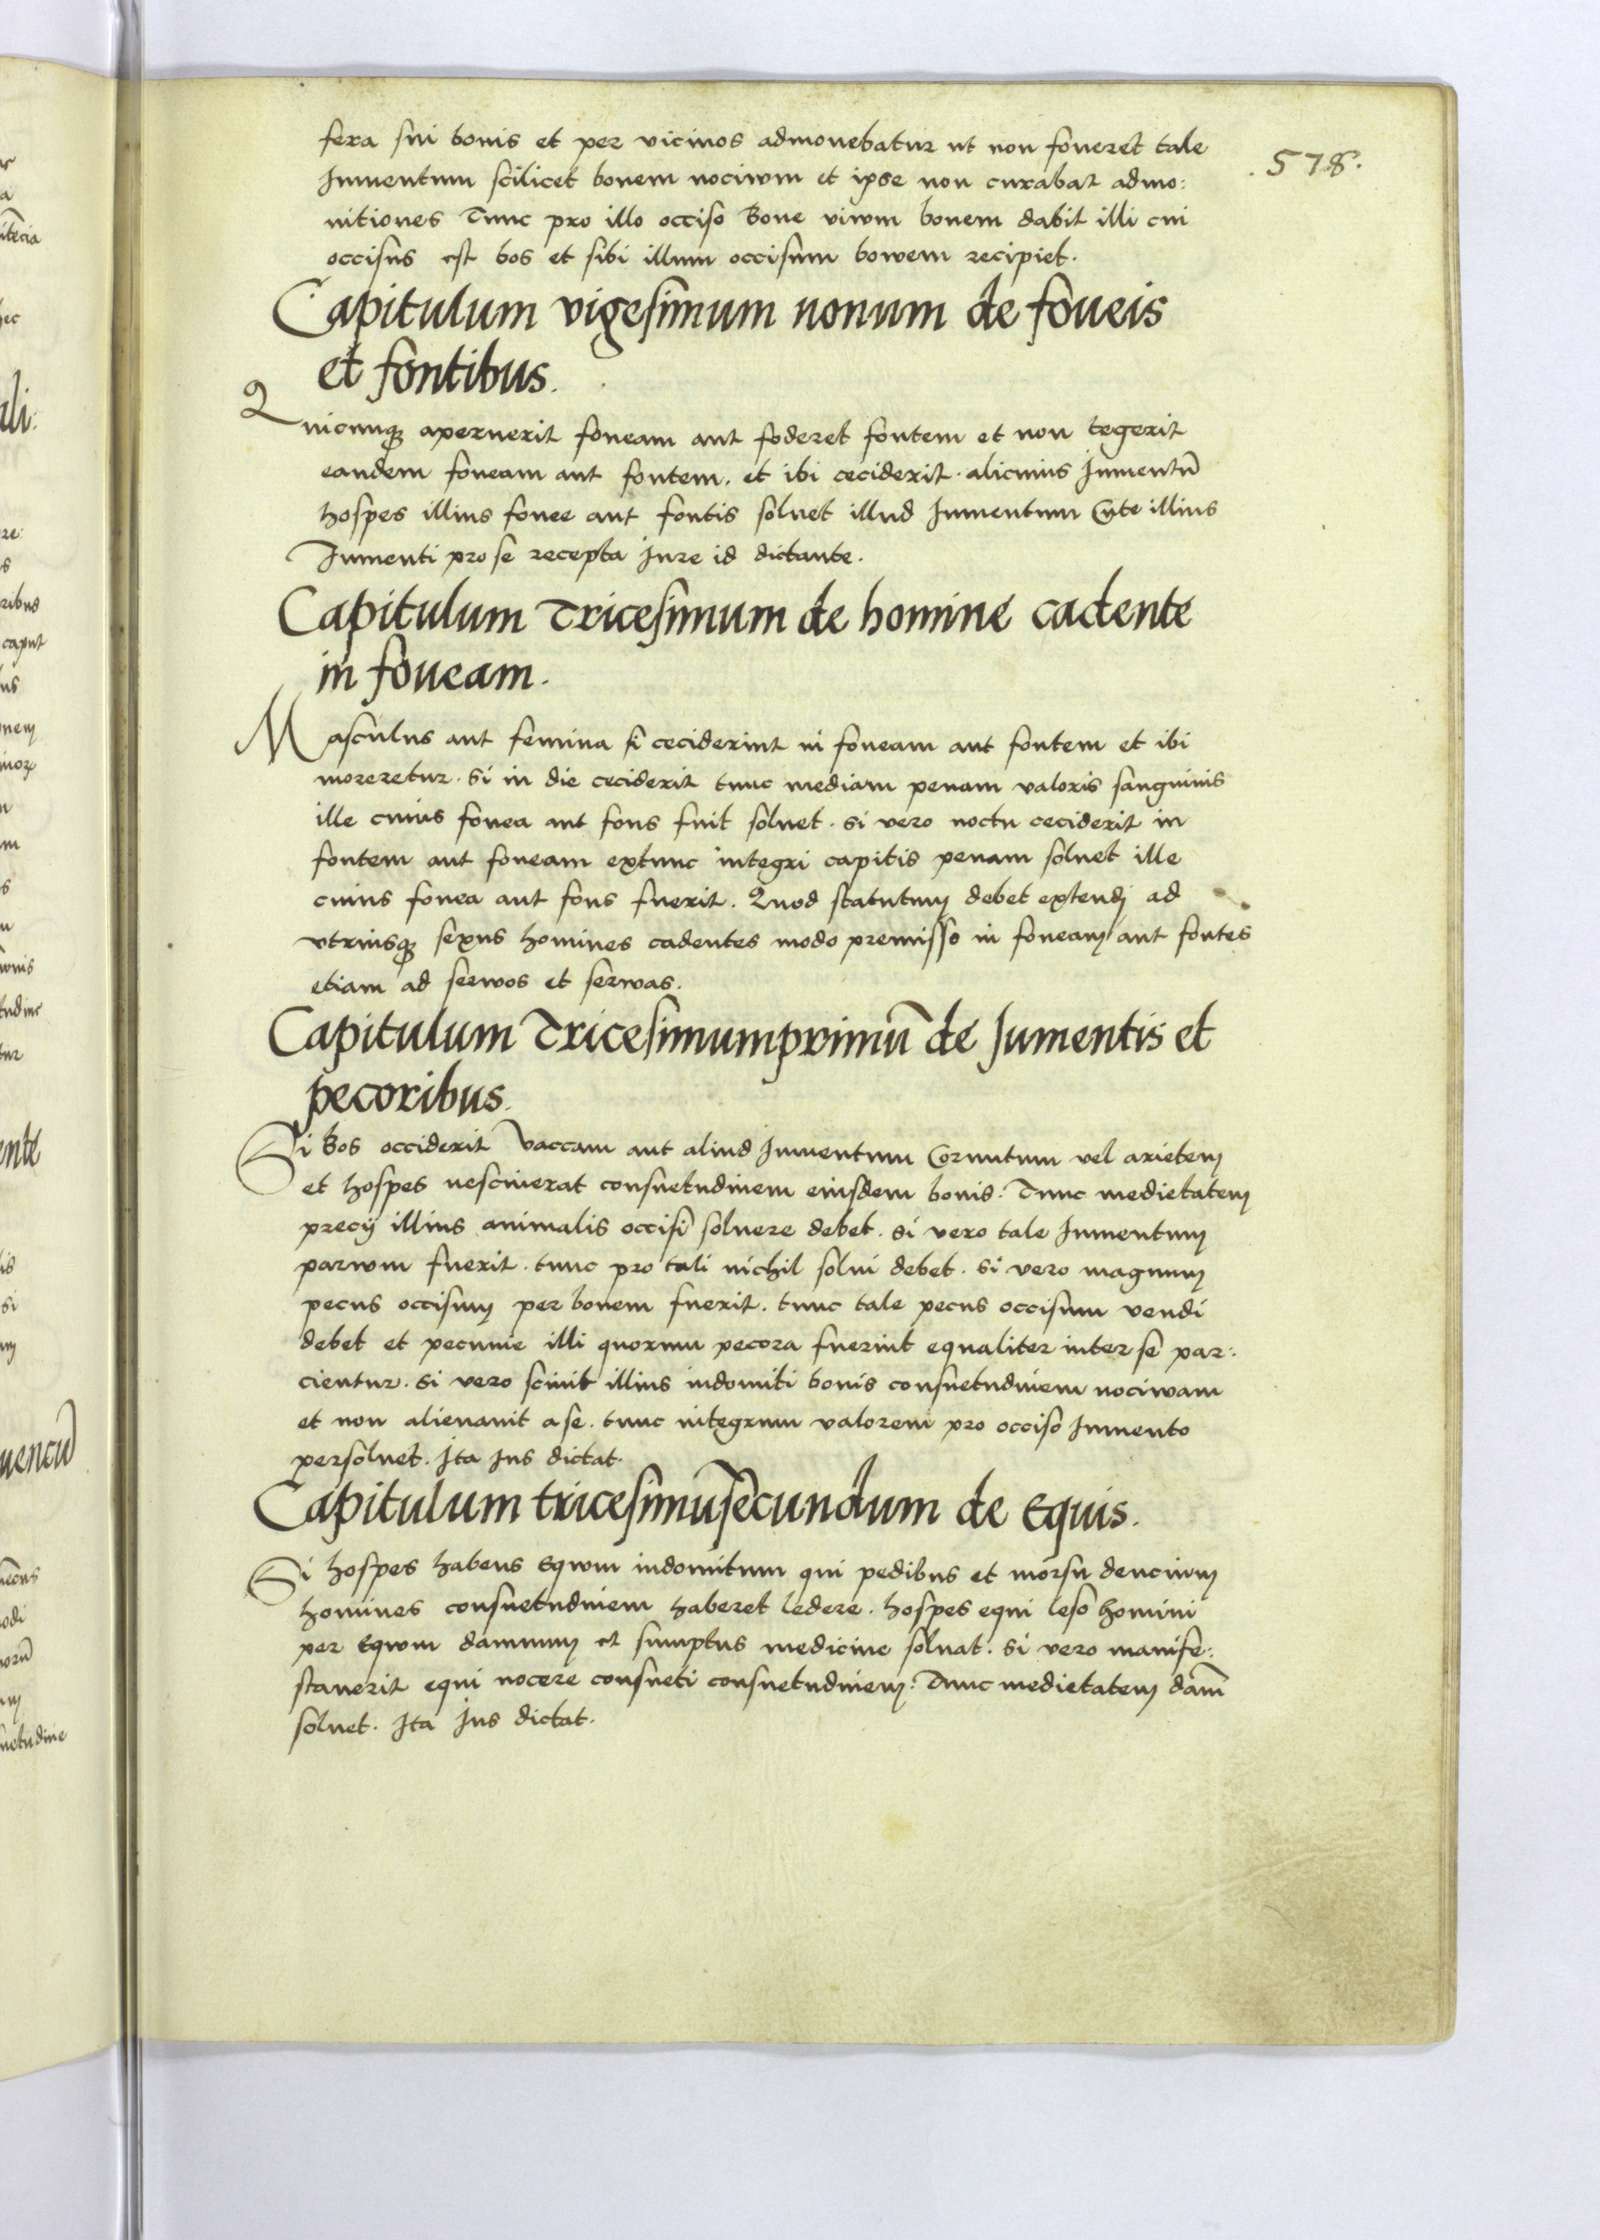 .578.
fera sui bouis et per vicinos admonebatur ut non foueret tale
Jumentum scilicet bouem nociwm et ipse non curabat admo:
nitiones Tunc pro illo occiso Boue viwm bouem dabit illi cui
occisus est bos et sibi illum occisum bowem recipiet.
Capitulum vigesimum nonum de foueis
et fontibus.
Quicunque aperuerit foueam aut foderet fontem et non tegerit
eandem foueam aut fontem. et ibi ceciderit. alicuius Jumentū
hospes illius fouee aut fontis soluet illud Jumentum Cute illius
Jumenti pro se recepta Jure id dictante.
Capitulum Tricesimum de homine cadente
in foueam.
Masculus aut femina si ceciderint in foueam aut fontem et ibi
moreretur. Si in die ceciderit tunc mediam penam valoris sanguinis
ille cuius fouea aut fons fuit soluet. si vero noctu ceciderit in
fontem aut foueam extunc integri capitis penam soluet ille
cuius fouea aut fons fuerit. Quod statutum debet extendi ad
vtriusque sexus homines cadentes modo premisso in foueam aut fontes
etiam ad serwos et serwas.
Capitulum Tricesimumprimū de Jumentis et
pecoribus.
Si Bos occiderit vaccam aut aliud Jumentum Cornutum vel arietem
et hospes nesciuerat consuetudinem eiusdem bouis. Tunc medietatem
precij illius animalis occisi soluere debet. si vero tale Jumentum
parwm fuerit. tunc pro tali nichil solui debet. si vero magnum
pecus occisum per bouem fuerit. tunc tale pecus occisum vendi
debet et pecunie illi quorum pecora fuerint equaliter inter se par:
cientur. si vero sciuit illius indomiti bouis consuetudinem nociwam
et non alienauit a se. tunc integrum valorem pro occiso Jumento
persoluet. Jta Jus dictat.
Capitulum tricesimūsecundum de Equis.
Si hospes habens Eqwm indomitum qui pedibus et morsu dencium
homines consuetudinem haberet ledere. hospes equi leso homini
per Eqwm damnum et sumptus medicine soluat. si vero manife:
stauerit equi nocere consueti consuetudinem. Tunc medietatem dam̄
soluet. Jta Jus dictat.